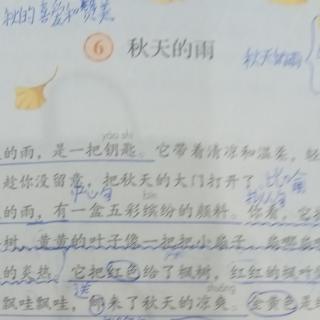 秋的喜爱和赞美
6 秋天的雨
秋天的雨
yào shi
的雨，是一把钥匙。它带着清凉和温柔，轻
趁你没留意，把秋天的大门打开了。
中心句
bīn
的雨，有一盒五彩缤纷的颜料。你看，它
树，黄黄的叶子像一把把小扇子，扇哪扇
的炎热。它把红色给了枫树，红红的枫叶
飘哇飘哇，邮来了秋天的凉爽。金黄色是